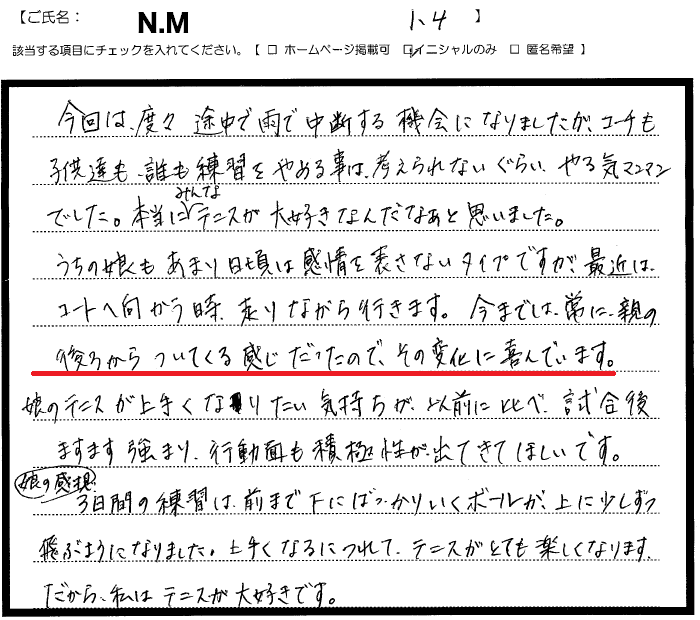 【ご氏名： N.M 1、4 】
該当する項目にチェックを入れてください。【 □ ホームページ掲載可 ☑イニシャルのみ □ 匿名希望 】
今回は、度々 途中で雨で中断する 機会になりましたが、コーチも
子供達も、誰も練習をやめる事は、考えられないぐらい、やる気マンマン
でした。本当にみんなテニスが大好きなんだなあと思いました。
うちの娘も あまり日頃は感情を表さないタイプですが、最近は、
コートへ向かう時、走りながら行きます。今までは、常に、親の
後ろから ついてくる感じだったので、その変化に喜んでいます。
娘のテニスが上手くなりたい気持ちが、以前に比べ、試合後
ますます強まり、行動面も積極性が、出てきてほしいです。
娘の感想
3日間の練習は、前まで下にばっかりいくボールが、上に少しずつ
飛ぶようになりました。上手くなるにつれて、テニスがとても楽しくなります、
だから、私はテニスが大好きです。